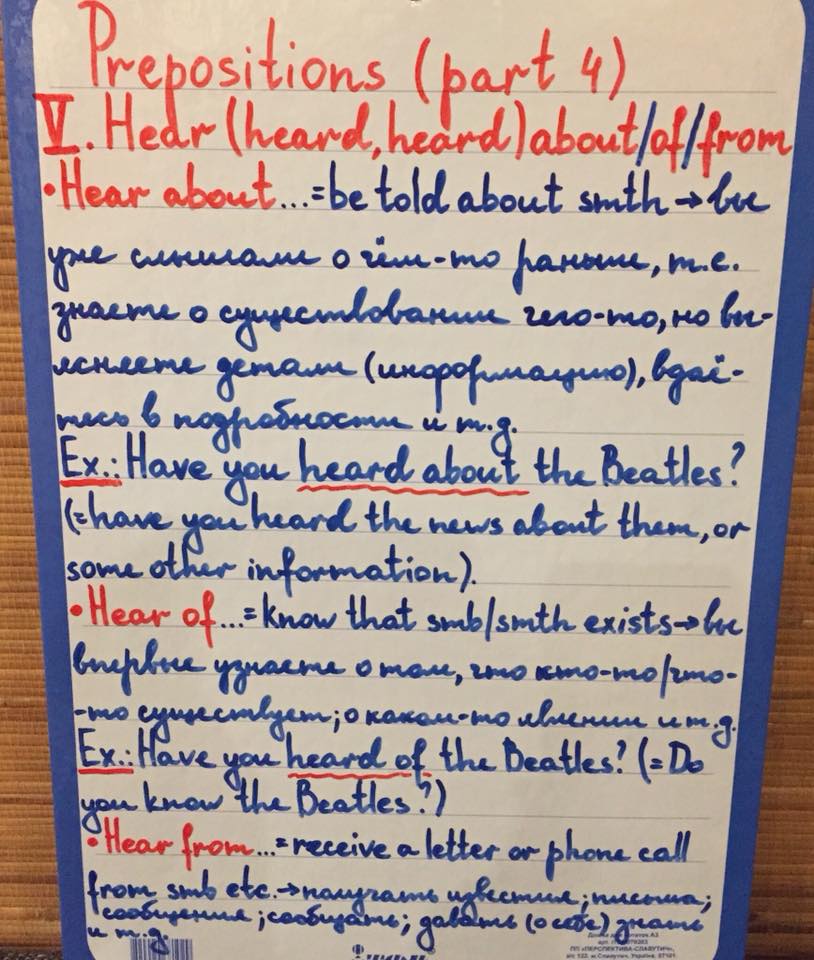 Prepositions (part 4)
V. Hear (heard, heard) about/of/from
• Hear about...=be told about smth → вы
уже слышали о чём-то раньше, т.е.
знаете о существовании чего-то, но вы-
ясняете детали (информацию), вдаё-
тесь в подробности и т.д.
Ex.: Have you heard about the Beatles?
(=have you heard the news about them, or
some other information).
• Hear of...=know that smb/smth exists → вы
впервые узнаете о том, что кто-то/что-
-то существует; о каком-то явлении и т.д.
Ex.: Have you heard of the Beatles? (=Do
you know the Beatles?)
• Hear from...=receive a letter or phone call
from smb etc. → получать известия; письма;
сообщения; сообщать; давать (о себе) знать
и т.д.
ПП «ПЕРСПЕКТИВА-СЛАВУТИЧ»,